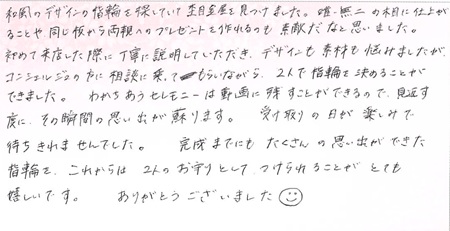 和風のデザインの指輪を探していて杢目金屋を見つけました。唯一無二の木目に仕上が
ることや同じ板から両親へのプレゼントを作れるのも素敵だなと思いました。
初めて来店した際に丁寧に説明していただき、デザインも素材も悩みましたが、
コンシェルジュの方に相談に乗てもらいながら、2人で指輪を決めることが
できました。 わかちあうセレモニーは動画に残すことができるので、見返す
度に、その瞬間の思い出が蘇ります。 受け取りの日が楽しみで
待ちきれませんでした。 完成までにもたくさんの思い出ができた
指輪を、これからは2人のお守りとしてつけられることがとても
嬉しいです。 ありがとうございました